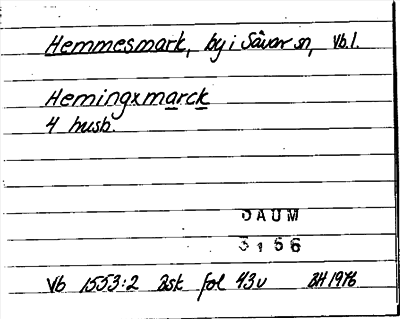 Hemmesmark, by i Sävar sn, Vb.l.
Hemingxmarck
4 husb.
DAUM
3166
Vb 1553:2 Bsk fol 43v BH 1976